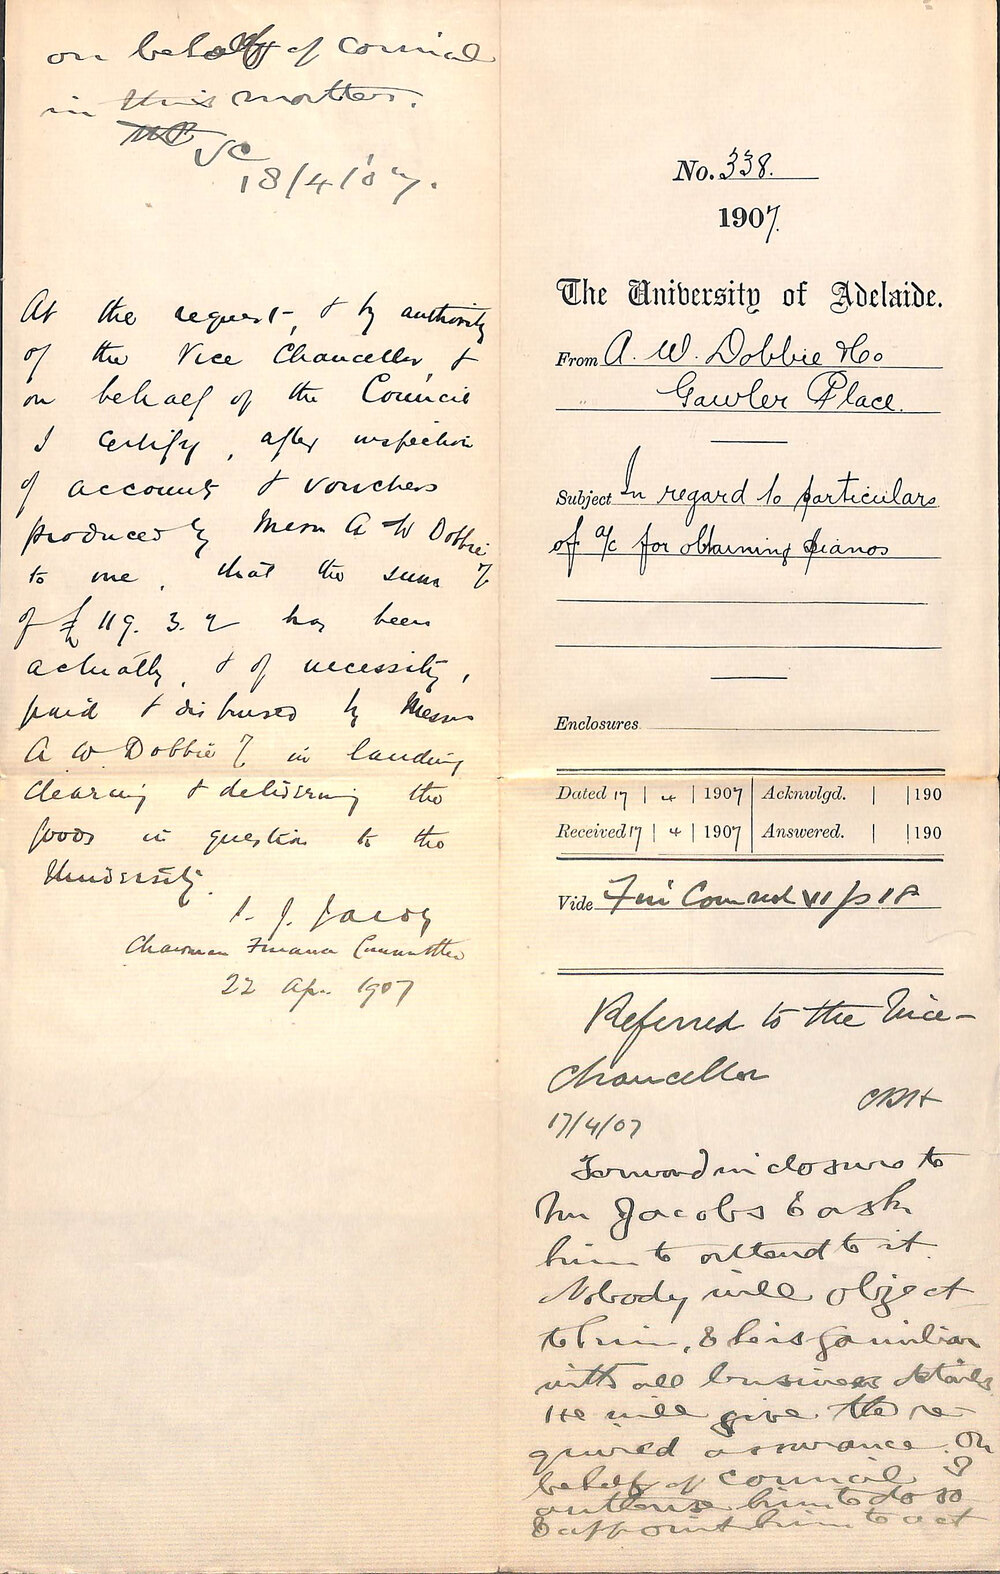 No. 338.
1907.
The University of Adelaide.
From A. W. Dobbie & Co
Gawler Place.
Subject In regard to particulars
of a/c for obtaining pianos
Enclosures
Dated 17 | 4 | 1907 Acknwlgd. | |190
Received 17 | 4 | 1907 Answered. | |190
Vide Fin Com
Referred to the Vice-
Chancellor
17/4/07
Forward inclosure to
Mr Jacobs & ask
him to attend to it.
Nobody will object
to him, & he is familiar
with all business details
He will give the re-
quired assurance. On
behalf of council I
authorise him to do so
& appoint him to act
on behalf of council
in this matter.
VC
18/4/07.
At the request, & by authority
of the Vice Chancellor, &
on behalf of the Council
I certify, after inspection
of accounts & vouchers
produced by Messrs A W Dobbie
to me, that the sum
of £119. 3. 2 has been
actually, & of necessity,
paid & disbursed by Messrs
A W Dobbie in landing
clearing & delivering the
goods in question to the
University.
S. J. Jacobs
Chairman Finance Committee
22 Apr. 1907